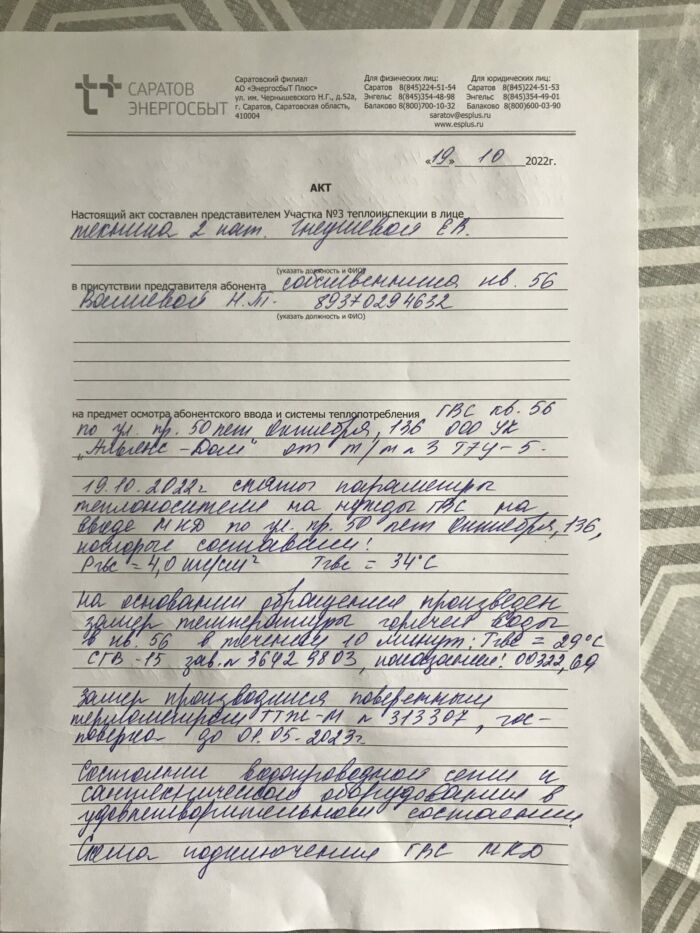 САРАТОВ
ЭНЕРГОСБЫТ
Саратовский филиал
АО «ЭнергосбыТ Плюс»
ул. им. Чернышевского Н.Г., д.52а,
г. Саратов, Саратовская область,
410004
Для физических лиц:
Саратов 8(845)224-51-54
Энгельс 8(845)354-48-98
Балаково 8(800)700-10-32
Для юридических лиц:
Саратов 8(845)224-51-53
Энгельс 8(845)354-49-01
Балаково 8(800)600-03-90
saratov@esplus.ru
www.esplus.ru
«19» 10 2022г.
АКТ
Настоящий акт составлен представителем Участка №3 теплоинспекции в лице
техника 2 кат. Гнеушевой Е.В.
(указать должность и ФИО)
в присутствии представителя абонента собственника кв. 56
Н.М. 89370294632
(указать должность и ФИО)
на предмет осмотра абонентского ввода и системы теплопотребления ГВС кв. 56
по ул. пр. 50 лет Октября, 136 ООО УК
„Альянс-Дом" от т/м №3 ТГУ-5.
19.10.2022г сняты параметры
теплоносителя на нужды ГВС на
вводе МКД по ул. пр. 50 лет Октября, 136,
которые составили:
Ргвс = 4,0 кгс/см² Тгвс = 34°С
На основании обращения произведен
замер температуры горячей воды
в кв. 56 в течении 10 минут: Тгвс = 29°С
СГВ-15 зав.№ 36429803, показания: 00322,69
Замер производился поверенным
термометром ТТЖ-М № 313307, гос-
поверка до 01.05.2023г.
Состоянии водопроводной сети и
сантехнического оборудования в
удовлетворительном состоянии.
Схема подключения ГВС МКД